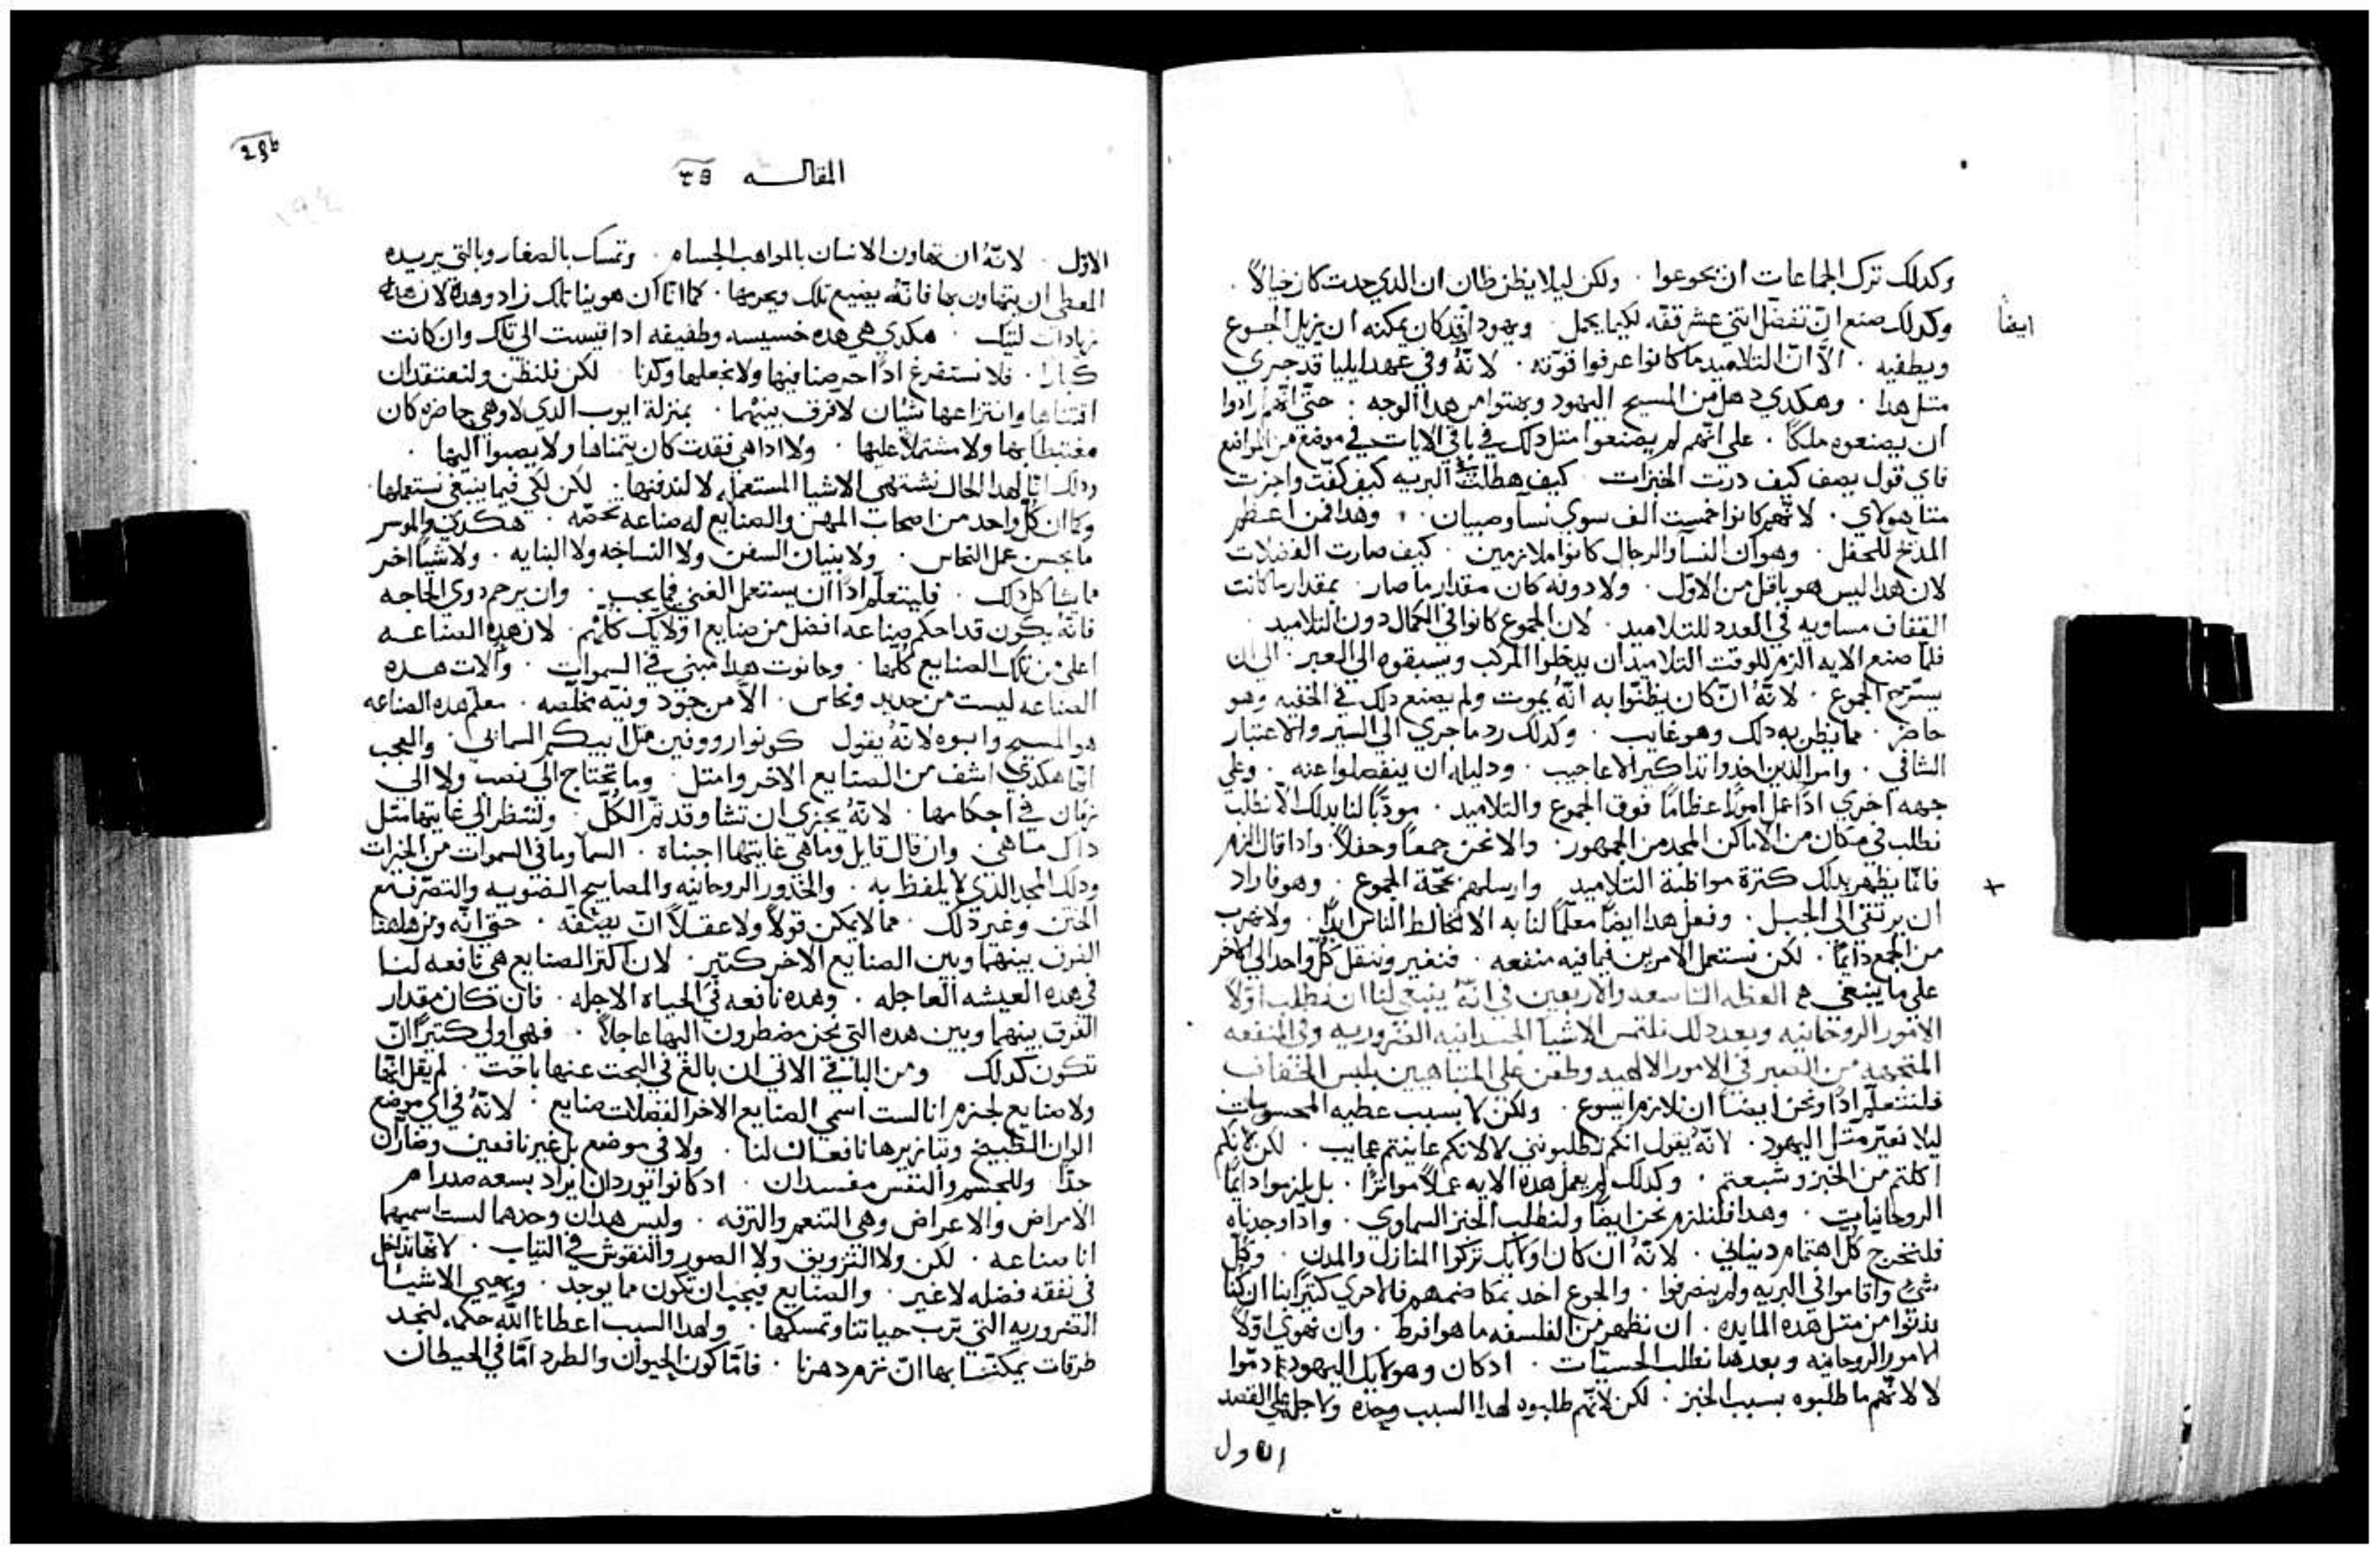 وكدلك ترك الجماعات ان يجوعوا . ولكن ليلا يظن ظان ان الدي حدت كان خيالاً .
وكدلك صنع ان تفضل اتنتي عشر قفه لكيما يحمل ويهودا قد كان يمكنه ان يزيل الجوع
ايضاً
ويطفيه . الاّ انّ التلاميد ما كانوا عرفوا قوّته . لانّهُ وفي عهد ايليا قد جري
متل هدا . وهكدي دهل من المسيح اليهود وبهتوا من هدا الوجه . حتّي انّهم ارادوا
ان يصنعوه ملكاً . علي انّهم لم يصنعوا متل دلك في باقي الايات في موضع من المواضع
فاي قول يصف كيف درت الخبزات كيف هطلت في البريه كيف كفّت واجزت
متا هولاي . لانّهم كانوا خمست الف سوي نسآ وصبيان . وهدا فمن اعظم
المدح للمحفل . وهو ان النسآ والرجال كانوا ملازمين . كيف صارت الفضلات
لان هدا ليس هو باقل من الاوّل . ولا دونه كان مقدار ما صار بمقدار ما كانت
القفاف مساويه في العدد للتلاميد . لان الجموع كانوا في الكمال دون التلاميد .
فلمّا صنع الايه الزم للوقت التلاميد ان يدخلوا المركب ويسبقوه الي العبر . الي ان
يسرّح الجموع . لانّهُ ان كان يظنّوا به انّهُ يموت ولم يصنع دلك في الخفيه وهو
حاضر . مما يظن به دلك وهو غايب . وكدلك رد ما جري الي السير والاعتبار
الشافي . وامر الدين اخدوا تداكير الاعاجيب . ودليله ان ينفصلوا عنه . وعلي
جهه اخري اداً عمل اموراً عظاماً فوق الجموع والتلاميد . مودّباً لنا بدلك الاّ نطلب
نطلب في مكان من الاماكن المجد من الجمهور . والا نحن جمعاً وحفلاً . وادا قال الزم
فانّما يظهر بدلك كترة مواظبة التلاميد وارسلهم بحجّة الجموع . وهو فاراد
ان يرتقي الي الجبل . وفعل هدا ايضاً معلّماً لنا به الا نخالط الناس ابداً . ولا نهرب
من الجمع دايماً . لكن نستعمل الامرين فيما فيه منفعه . فنغير وننقل كلّ واحد الي الاخر
علي ما ينبغي العظه التاسعه والاربعين في انّهُ ينبغي لنا ان نطلب اوّلاً
الامور الروحانيه وبعد دلك نلتمس الاشيا الجسدانيه الضروريه وفي المنفعه
المتجهه من التعبير في الامور الالهيه وطعن علي المتباهيين بلبس الخفاف
فلنتعلّم اداً ونحن ايضاً ان نلازم ايسوع . ولكن لا بسبب عطيه المحسوسات
ليلا نعيّر متل اليهود . لانّهُ يقول انكم تطلبونني لا لانكم عاينتم عجايب . لكن لانكم
اكلتم من الخبز وشبعتم . وكدلك لم يعمل هده الايه عملاً متواتراً . بل يلزموا دايماً
الروحانيات . وهدا فلنلزم نحن ايضاً ولنطلب الخبز السماوي . وادا وجدناه
فلنخرج كل اهتمام دنياني . لانّهُ ان كان اولايك تركوا المنازل والمدن . وكل
شيء واقاموا في البريه ولم ينصرفوا . والجوع اخد بمكاضمهم فالاحري كتيراً بنا ان كنا
يدنوا من متل هده المايده . ان نظهر من الفلسفه ما هو افرط . وان نهوي اوّلاً
الامور الروحانيه وبعدها نطلب الحسيّات . ادكان وهولايك اليهود ادمّوا
لا لانّهم ما طلبوه بسبب الخبز . لكن لانّهم طلبوه لهدا السبب وحده ولاجل علي القصد
الاول
المقالـــه
الاوّل . لانّهُ ان تهاون الانسان بالمواهب الجسام . وتمسك بالصغار وبالتي يريده
المعطي ان يتهاون بها فانّهُ يضيع تلك ويحرمها . كما انّا ان هوينا تلك زاد وهده لان هده
زيادات لتيك . هكدي هي هده خسيسه وطفيفه ادا قيست الي تلك وان كانت
كبارا . فلا نستفرغ اداً حرصنا فيها ولا نجعلها وكدنا لكن فلنظن ولنعتقد ان
اقتناها وانتزاعها شيّان لا فرق بينهما . بمنزلة ايوب الدي لا وهي حاضره كان
مغتبطاً بها ولا مشتملاً عليها . ولا ادا هي فقدت كان يتمناها ولا يصبوا اليها .
ودلك انّا لهدا الحال نشتهي الاشيا المستعمله لا لندفنها . لكن لكي فيما ينبغي نستعملها .
وكما ان كلّ واحد من اصحاب المهن والصنايع له صناعه تخصّه . هكدي والموسر
ما يحسن عمل النحاس . ولا بنيان السفن ولا النساخه ولا البنايه . ولا شياً اخر
مما يشاكل دلك . فليتعلّم اداً ان يستعمل الغني فيما يجب . وان يرحم دوي الحاجه
فانّهُ يكون قد احكم صناعه افضل من صنايع اولايك كلّهم . لان هده الصناعـــه
اعلي من تلك الصنايع كلّها . وحانوت هدا مبني في السموات . وآلات هـــده
الصناعه ليست من حديد ونحاس . الاّ من جود ونيّه مخلّصه . معلّم هده الصناعه
هو المسيح وابوه لانّهُ يقول كونوا رووفين متل ابيكم السماني . والعجب
انّها هكدي اشف من الصنايع الاخر وامتل . وما تحتاج الي نصب ولا الي
زمان في احكامها . لانّهُ يجزي ان تشا وقد تمّ الكُلّ . ولننظر الي غايتها متل
داك ما هي . وان قال قايل وما هي غايتها اجبناه . السما وما في السموات من الخيرات
ودلك المجد الدي لا يلفظ به . والخدور الروحانيه والمصابيح الضوييه والتصرّف مع
الختن وغير دلك . مما لا يمكن قولاً ولا عقلاً ان يصفه . حتي انّه ومن هاهنا
الفرق بينهما وبين الصنايع الاخر كتير . لان اكتر الصنايع هي نافعه لنـا
في هده العيشه العاجله . وهده نافعه في الحياه الاجله . فان تكان مقدار
الفرق بينهما وبين هده التي نحن مضطرون اليها عاجلاً . فهي اولي كتيراً ان
تكون كدلك ومن الباقي الاتي ان بالغ في البحت عنها باحت . لم يقل انّها
ولا صنايع لجنزم انا لست اسمي الصنايع الاخر الفضلات صنايع : لانّهُ في اي موضع
الوان الطبيخ وتبازيرها نافعان لنا . ولا في موضع بل غير نافعين وضارّان
جدّا وللجسم والنفس مفسدان . ادكانوا يوردان ايراد بسعه مدرام
الامراض والاعراض وهي التنعم والترفه . وليس هدان وحدهما لست اسميهما
انا صناعه . لكن ولا التزويق ولا الصور والنقوش في التياب . لانّها تدخل
في نفقه فضله لا غير . والصنايع فيجب ان تكون مما يوجد . ويهيي الاشيا
الضروريه التي ترب حياتنا وتمسكها . ولهدا السبب اعطانا اللّه حكمه لنجد
طرقات يمكنّنا بها ان نرم دهرنا . فامّا كون الحيوان والطرد امّا في الحيطان